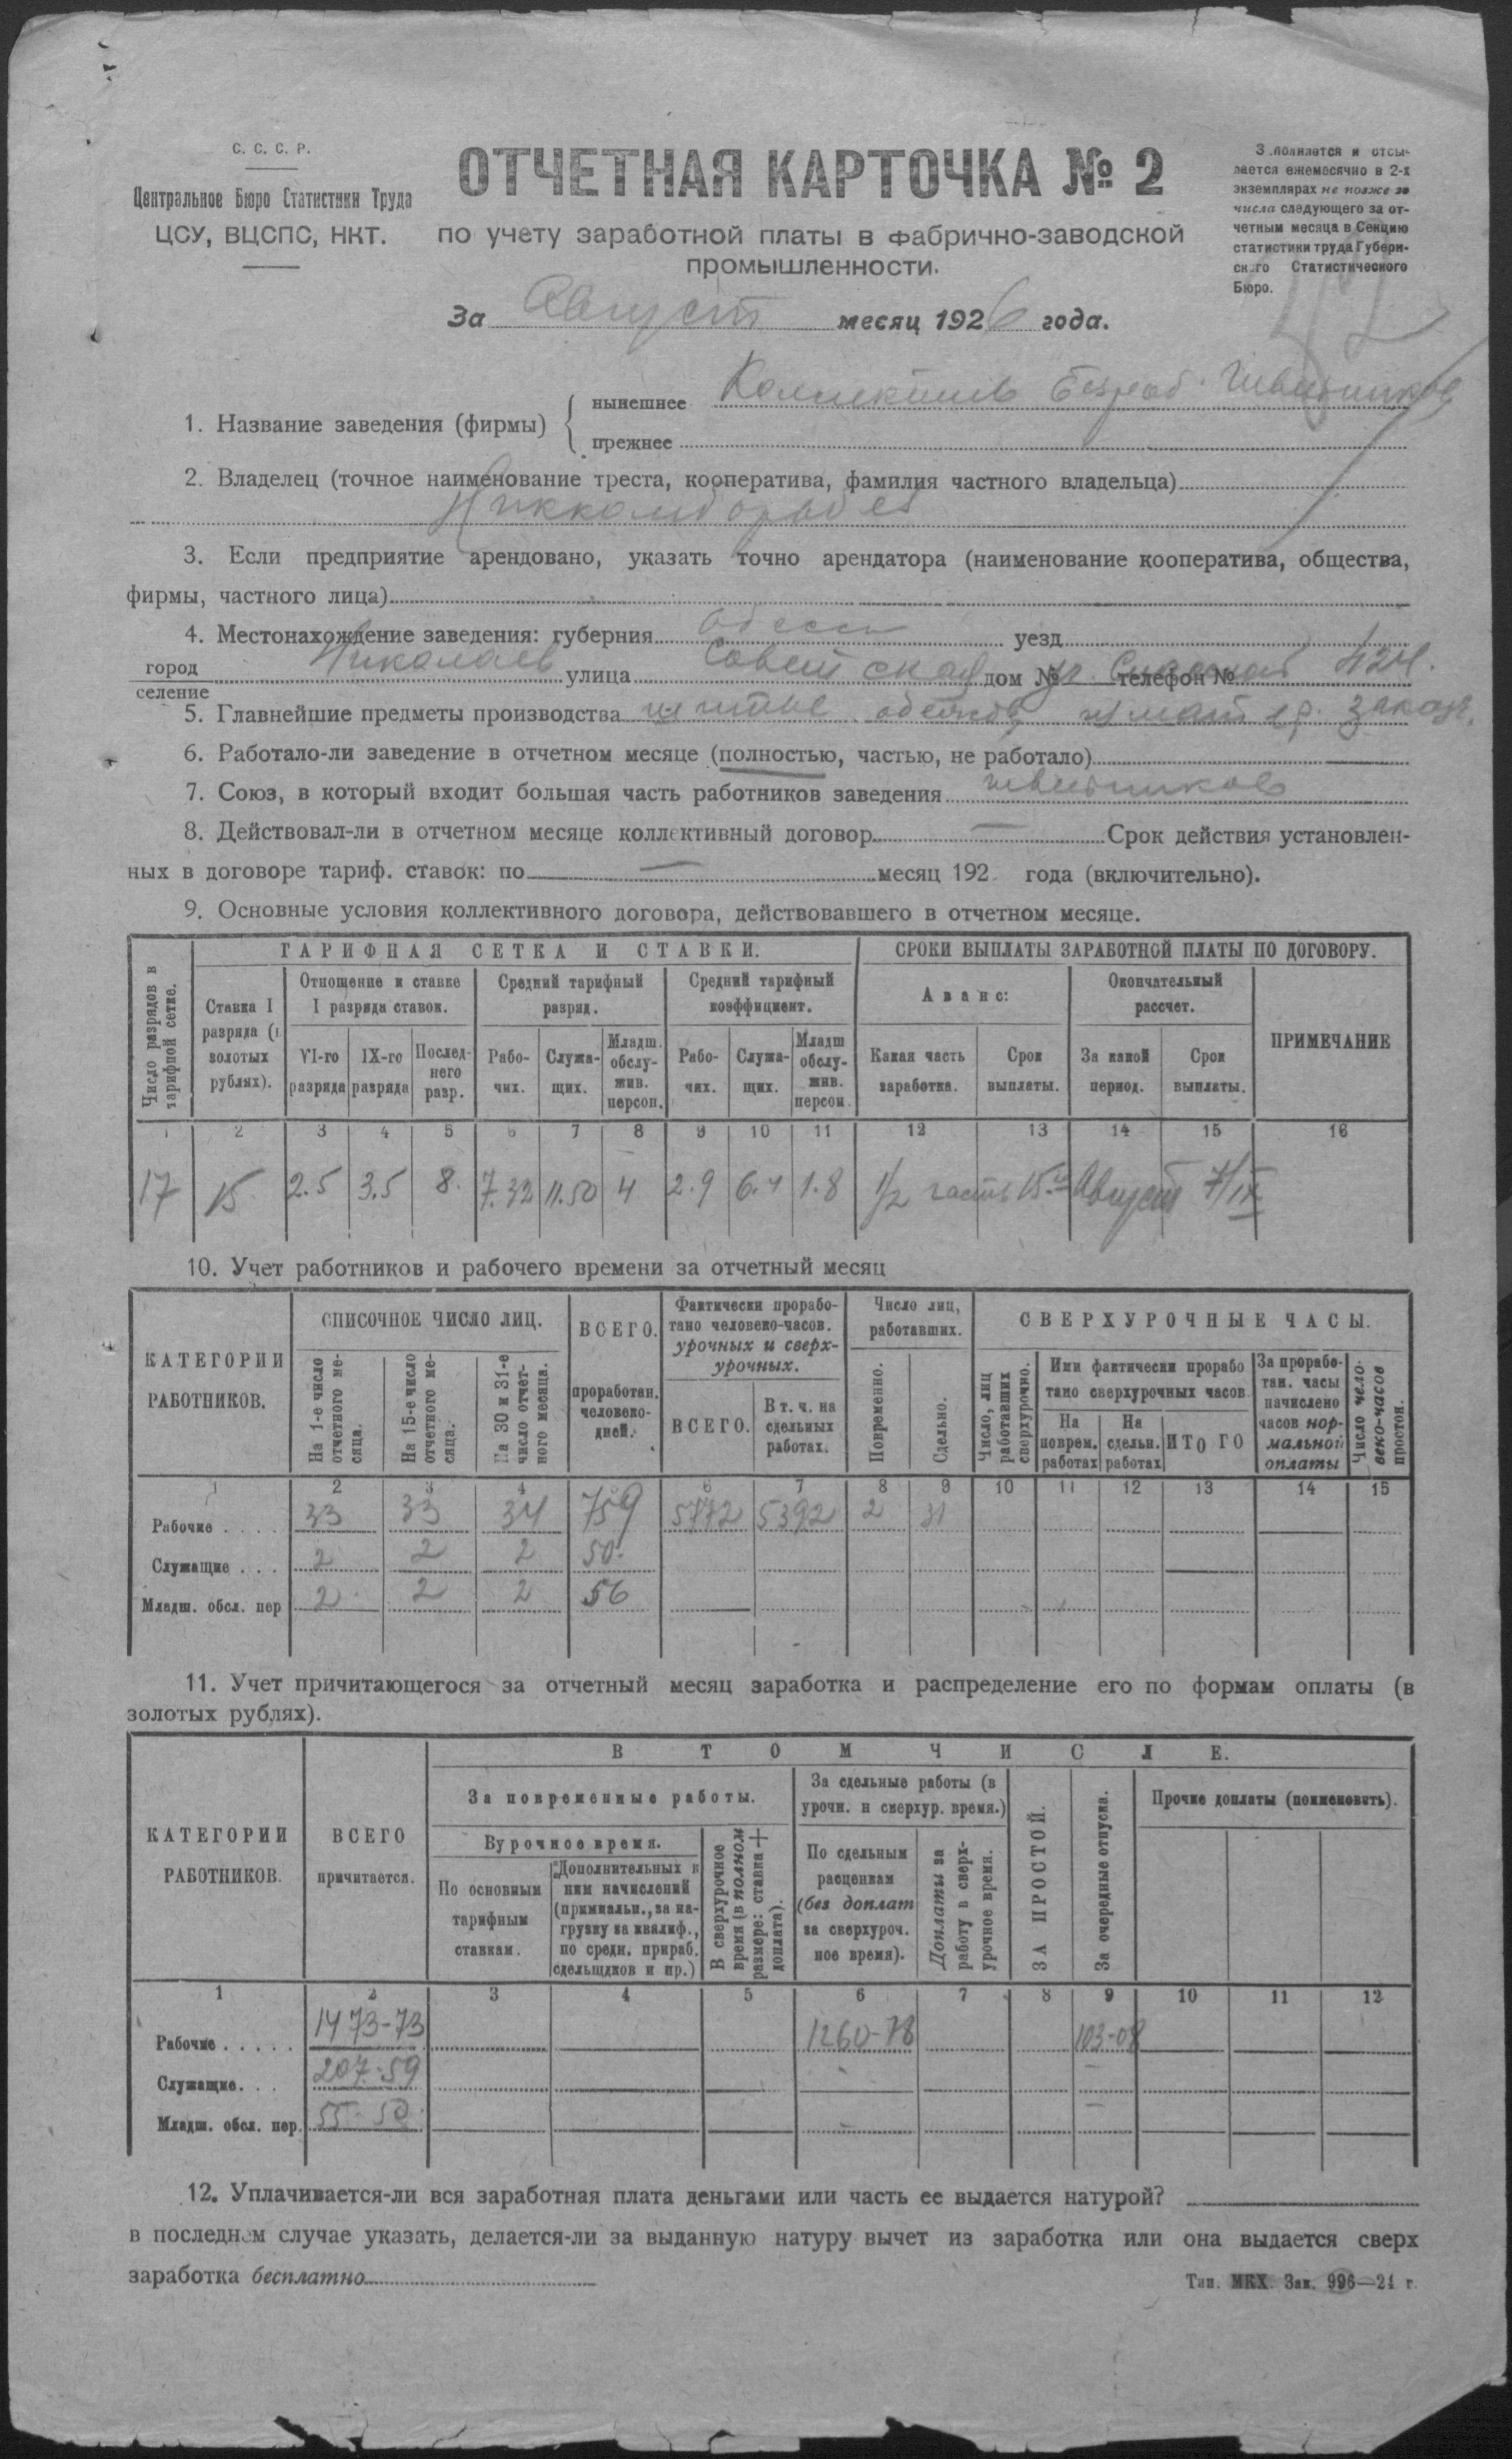 С. С. С. Р.
Центральное Бюро Статистики Труда
ЦСУ, ВЦСПС, НКТ.
ОТЧЕТНАЯ КАРТОЧКА № 2
по учету заработной платы в фабрично-заводской
промышленности.
За Август месяц 1926 года.
З полняется и отсы-
лается ежемесячно в 2-х
экземплярах не позже
числа следующего за от-
четным месяца в Секцию
статистики труда Губерн-
ск го Статистического
Бюро.
1. Название заведения (фирмы)
нынешнее Коллектив безраб. Швейников
прежнее
2. Владелец (точное наименование треста, кооператива, фамилия частного владельца)
3. Если предприятие арендовано, указать точно арендатора (наименование кооператива, общества,
фирмы, частного лица)
4. Местонахождение заведения: губерния Одесс уезд
город Николаев улица Советская дом № телефон № 424.
селение
5. Главнейшие предметы производства шитье одежды заказч.
6. Работало-ли заведение в отчетном месяце (полностью, частью, не работало)
7. Союз, в который входит большая часть работников заведения швейников
8. Действовал-ли в отчетном месяце коллективный договор — Срок действия установлен-
ных в договоре тариф. ставок: по — месяц 192 года (включительно).
9. Основные условия коллективного договора, действовавшего в отчетном месяце.
Число разрядов в тарифной сетке.
ТАРИФНАЯ СЕТКА И СТАВКИ.
СРОКИ ВЫПЛАТЫ ЗАРАБОТНОЙ ПЛАТЫ ПО ДОГОВОРУ.
Ставка I разряда ( золотых рублях).
Отношение к ставке I разряда ставок.
VI-го разряда IX-го разряда Послед-него разр.
Средний тарифный разряд.
Рабо-чих. Служа-щих. Младш. обслу-жив. персон.
Средний тарифный коэффициент.
Рабо-чих. Служа-щих. Младш обслу-жив. персон.
Аванс:
Какая часть заработка. Срок выплаты.
Окончательный рассчет.
За какой период. Срок выплаты.
ПРИМЕЧАНИЕ
1 2 3 4 5 6 7 8 9 10 11 12 13 14 15 16
17 15 2.5 3.5 8. 7.32 11.50 4 2.9 6.4 1.8 1/2 часть 15 Август 7/IX
10. Учет работников и рабочего времени за отчетный месяц
КАТЕГОРИИ РАБОТНИКОВ.
СПИСОЧНОЕ ЧИСЛО ЛИЦ.
На 1-е число отчетного ме-сяца.
На 15-е число отчетного ме-сяца.
На 30 и 31-е число отчет-ного месяца.
ВСЕГО. проработан. человеко-дней.
Фактически прорабо-тано человеко-часов. урочных и сверх-урочных.
ВСЕГО. В т. ч. на сдельных работах.
Число лиц, работавших.
Повременно. Сдельно.
СВЕРХУРОЧНЫЕ ЧАСЫ.
Число, лиц работавших сверхурочно.
Ими фактически прорабо тано сверхурочных часов.
На поврем. работах На сдельн. работах ИТОГО
За прорабо-тан. часы начислено часов нор-мальной оплаты
Число чело-веко-часов простоя.
1 2 3 4 5 6 7 8 9 10 11 12 13 14 15
Рабочие . . . . 33 33 34 759 5772 5392 2 31
Служащие . . . 2 2 2 50.
Младш. обсл. пер 2 2 2 56
11. Учет причитающегося за отчетный месяц заработка и распределение его по формам оплаты (в
золотых рублях).
КАТЕГОРИИ РАБОТНИКОВ.
ВСЕГО причитается.
В ТОМ ЧИСЛЕ.
За повременные работы.
В урочное время.
По основным тарифным ставкам.
Дополнительных к ним начислений (примиальн., за на-грузку за квалиф., по средн. прираб. сдельщиков и пр.)
В сверхурочное время (в полном размере: ставка + доплата).
За сдельные работы (в урочн. и сверхур. время.)
По сдельным расценкам (без доплат за сверхуроч. ное время).
Доплаты за работу в сверх-урочное время.
ЗА ПРОСТОЙ.
За очередные отпуска.
Прочие доплаты (поименовать).
1 2 3 4 5 6 7 8 9 10 11 12
Рабочие . . . . . 1473-73 1260-78 103-08
Служащие. . . 207-59
Младш. обсл. пер. 55-50
12. Уплачивается-ли вся заработная плата деньгами или часть ее выдается натурой?
в последнем случае указать, делается-ли за выданную натуру вычет из заработка или она выдается сверх
заработка бесплатно
Тип. МКХ. Зак. 996—24 г.